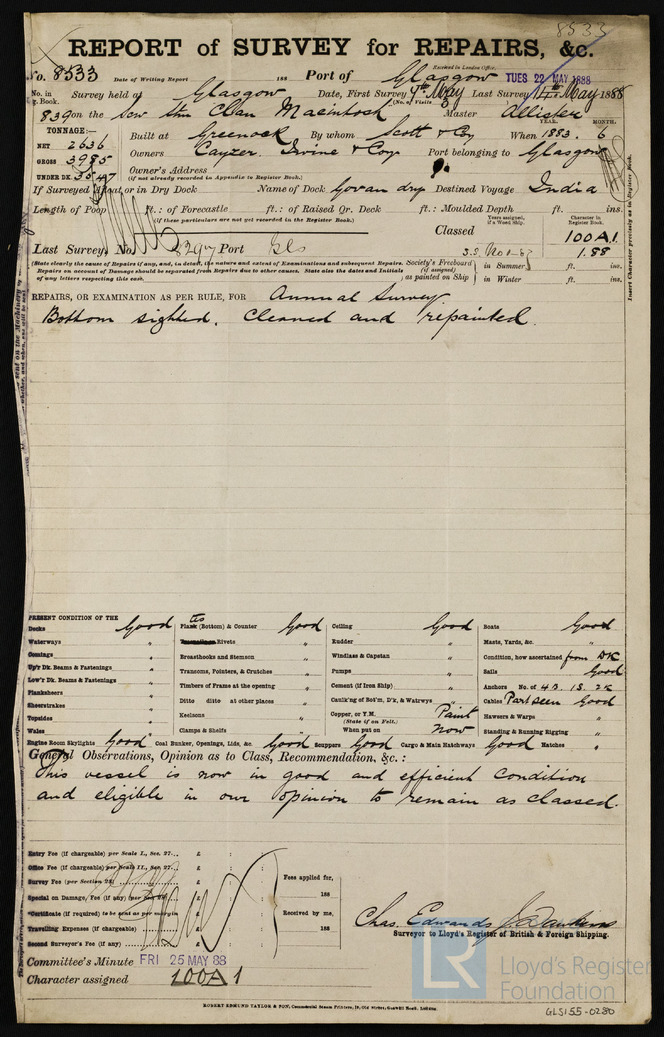 8533
REPORT of SURVEY for REPAIRS, &c.
No. 8533 Date of Writing Report 188 Port of Glasgow Received in London Office, TUES 22 MAY 1888
No. in Survey held at Glasgow Date, First Survey 9th May Last Survey 14th May 1888
Reg. Book. (No. of Visits 3
839 on the Scw Stm Clan Macintosh Master Allister
TONNAGE:— YEAR. MONTH.
NET 2636 Built at Greenock By whom Scott & Coy When 1883. 6
GROSS 3985 Owners Cayzer. Irvine & Coy Port belonging to Glasgow
UNDER DK. 3547 Owner's Address
(if not already recorded in Appendix to Register Book.)
If Surveyed Afloat or in Dry Dock Name of Dock Govan dry Destined Voyage India
Length of Poop ft.: of Forecastle ft.: of Raised Qr. Deck ft.: Moulded Depth ft. ins.
(if these particulars are not yet recorded in the Register Book.)
Years assigned, if a Wood Ship. Character in Register Book.
Classed 100A1.
Last Survey, No. Port Gls S.S. No 1-87 1.88
(State clearly the cause of Repairs if any, and, in detail, the nature and extent of Examinations and subsequent Repairs. Society's Freeboard in Summer ft. ins.
Repairs on account of Damage should be separated from Repairs due to other causes. State also the dates and Initials (if assigned)
of any letters respecting this case. as painted on Ship in Winter ft. ins.
Insert Character precisely as in Register Book.
REPAIRS, OR EXAMINATION AS PER RULE, FOR Annual Survey.
Bottom sighted. Cleaned and repainted.
PRESENT CONDITION OF THE
Decks Good Plates (Bottom) & Counter Good Ceiling Good Boats Good
Waterways " Rivets " Rudder " Masts, Yards, &c. "
Comings " Breasthooks and Stemson " Windlass & Capstan " Condition, how ascertained from DK
Up'r Dk. Beams & Fastenings " Transoms, Pointers, & Crutches " Pumps " Sails Good
Low'r Dk. Beams & Fastenings " Timbers of Frame at the opening Cement (if Iron Ship) " Anchors No. of 4B. 1S. 2K
Planksheers " Ditto ditto at other places Caulk'g of Bot'm, D'k, & Watrwys " Cables Part seen Good
Sheerstrakes " Keelsons " Copper, or Y.M. Paint Hawsers & Warps "
Topsides " (State if on Felt.)
Wales " Clamps & Shelfs " When put on Now Standing & Running Rigging "
Engine Room Skylights Good Coal Bunker, Openings, Lids, &c. Good Scuppers Good Cargo & Main Hatchways Good Hatches "
General Observations, Opinion as to Class, Recommendation, &c.:
This vessel is now in good and efficient condition
and eligible in our opinion to remain as classed.
Entry Fee (if chargeable) per Scale I., Sec. 27... £ : :
Office Fee (if chargeable) per Scale II., Sec. 27... £ : : Fees applied for,
Survey Fee (per Section 28) £ : : 188
Special on Damage, Fee (if any) (per Sec. £ : : Received by me,
"Certificate (if required) to be sent as per margin £ : :
Travelling Expenses (if chargeable) £ : : 188
Second Surveyor's Fee (if any) £ : :
Chas. Edwards
Surveyor to Lloyd's Register of British & Foreign Shipping.
Committee's Minute FRI 25 MAY 88
Character assigned 100A1
LR Lloyd's Register
Foundation
ROBERT EDMUND TAYLOR & SON, Commercial Steam Printers, 19, Old Street, Goswell Road, London.
GLS155-0280